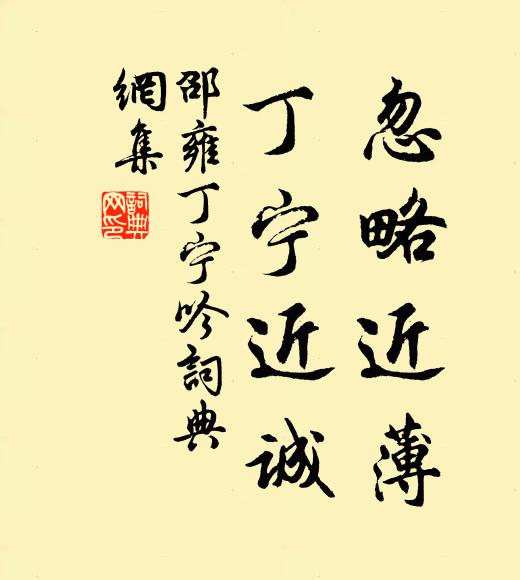 忽略近薄
丁宁近诚
邵雍丁宁吟詞典
網集
詞典
网印